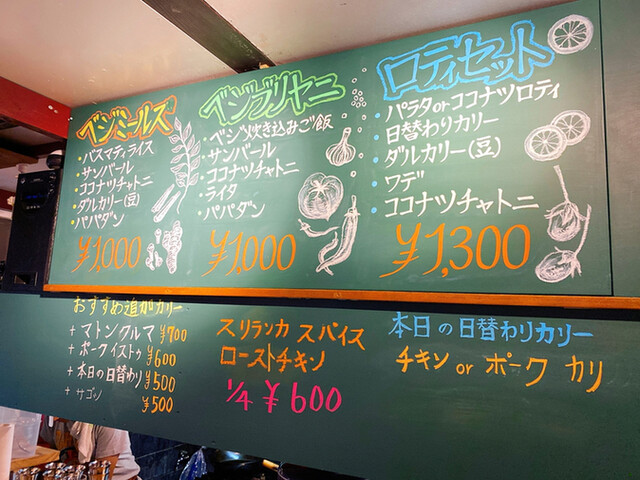 ベジミールズ
・バスマティライス
・サンバール
・ココナツチャトニ
・ダルカリー(豆)
・パパダン
¥1,000
ベジブリヤニ
・ベジ炊き込みご飯
・サンバール
・ココナツチャトニ
・ライタ
・パパダン
¥1,000
ロティセット
・パラタorココナツロティ
・日替わりカリー
・ダルカリー(豆)
・ワデ
・ココナツチャトニ
¥1,300
おすすめ追加カリー
+マトンクルマ ¥700
+ポークイストゥ ¥600
+本日の日替わり ¥500
+
¥500
スリランカ スパイス
ローストチキン
1/4 ¥600
本日の日替わりカリー
チキン or ポーク カリ